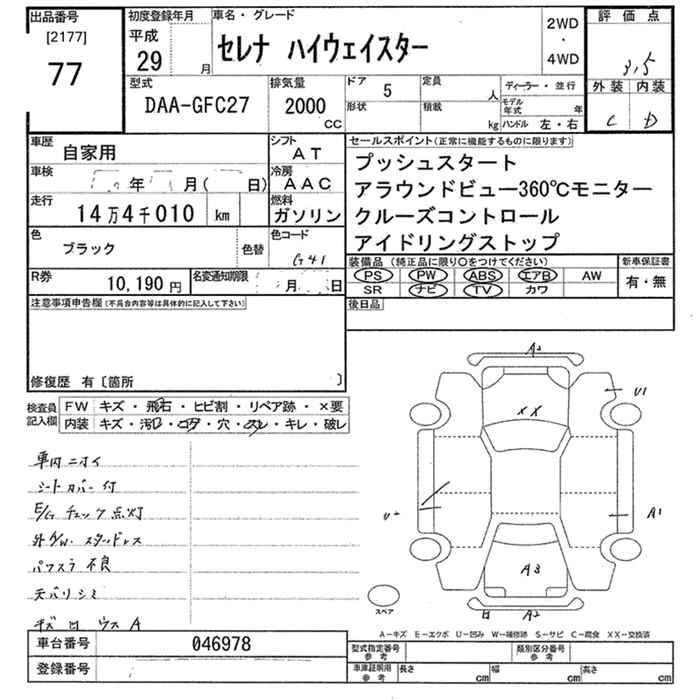 出品番号
[2177]
77
初度登録年月
平成
29 月
車名・グレード
セレナ ハイウェイスター
2WD
・
4WD
評価点
3,5
外装 内装
C D
型式
DAA-GFC27
排気量
2000
CC
ドア 5
形状
定員 人
積載 kg
ディーラー・並行
モデル年式 年
ハンドル 左・右
車歴
自家用
シフト
AT
車検
年 月( 日)
冷房
AAC
走行
14万4千010 km
燃料
ガソリン
色
ブラック
色替
色コード
G41
R券
10,190 円
名変通知期限
月 日
セールスポイント(正常に機能するものに限ります)
プッシュスタート
アラウンドビュー360℃モニター
クルーズコントロール
アイドリングストップ
装備品(純正品に限り○をつけてください)
PS PW ABS エアB AW
SR ナビ TV カワ
新車保証書
有・無
後日品
注意事項申告欄(不具合内容等は具体的に記入して下さい)
修復歴 有〔箇所 〕
検査員
記入欄
FW キズ・飛石・ヒビ割・リペア跡・×要
内装 キズ・汚レ・コゲ・穴・スレ・キレ・破レ
車内ニオイ
シートカバー付
E/Gチェック点灯
外A/W、スタッドレス
パワスラ不良
天バリシミ
A2
U1
XX
U2
A1
A3
A2
スペア
A-キズ E-エクボ U-凹み W-補修跡 S-サビ C-腐食 XX-交換済
車台番号
046978
登録番号
型式指定番号
参考
類別区分番号
参考
車庫証明用
参考
長さ cm 幅 cm 高さ cm